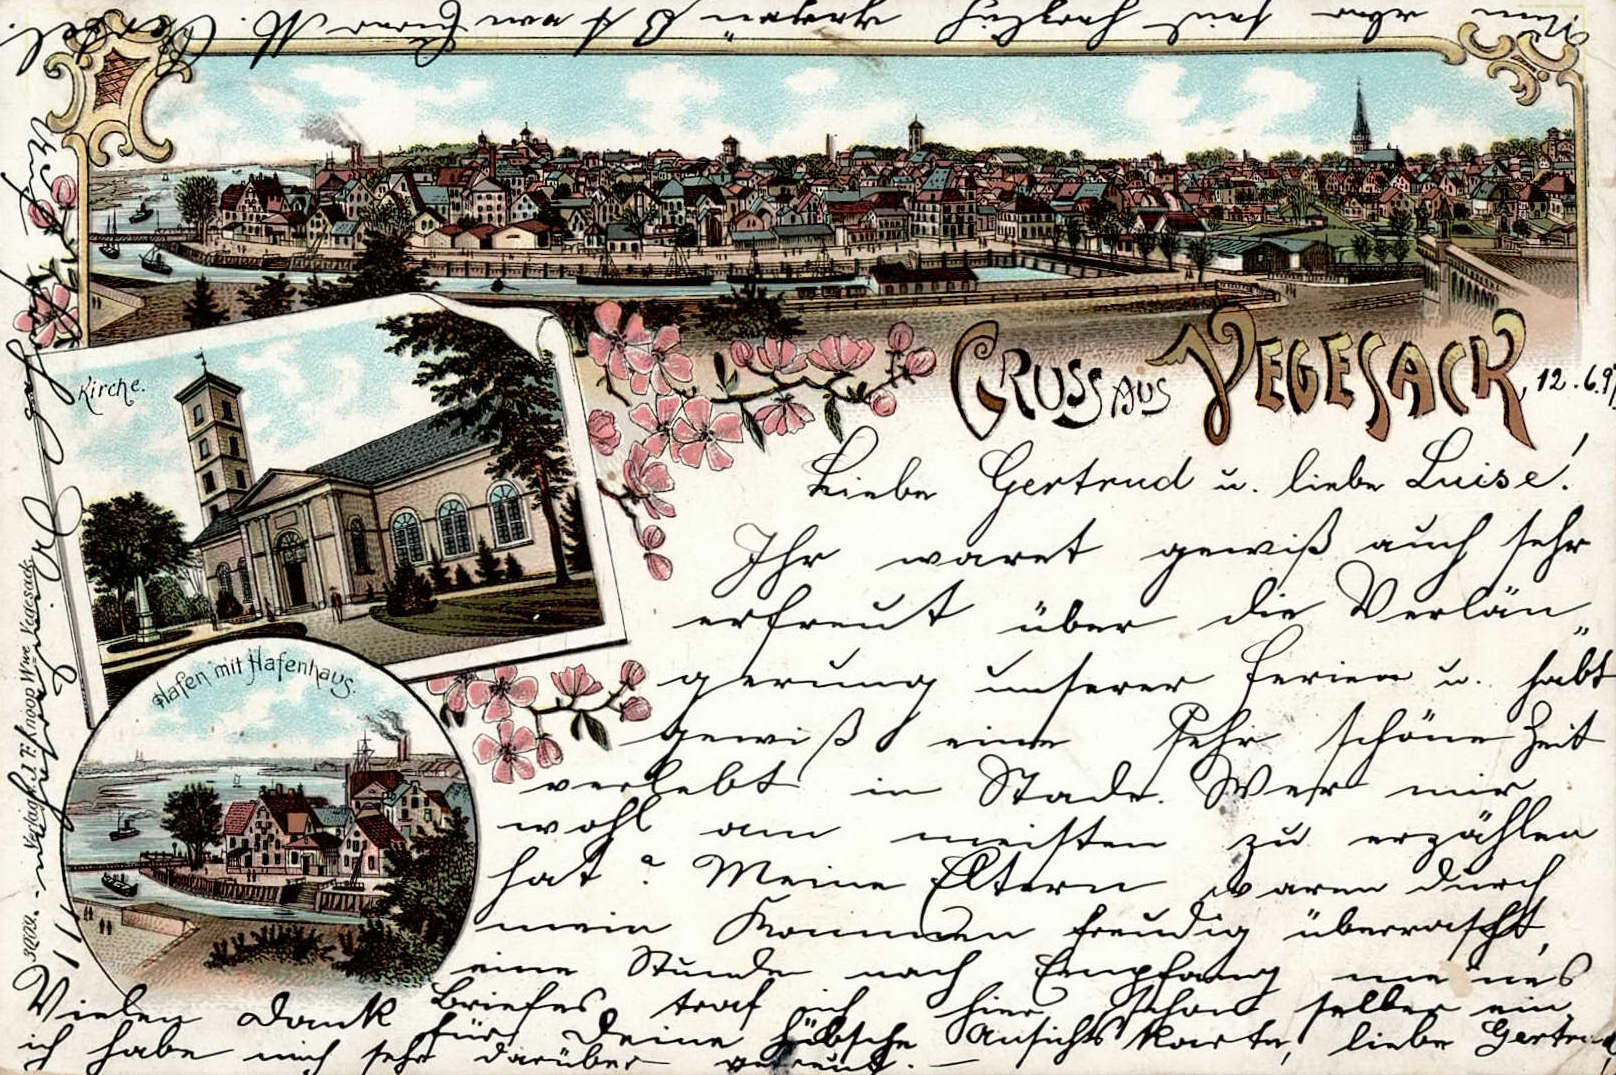 Gruss aus Vegesack, 12.6.97
Kirche.
Hafen mit Hafenhaus.
Verlag v. J. F. Knoop Wwe Vegesack.
Liebe Gertrud u. liebe Luise!
Ihr waret gewiß auch sehr
erfreut über die Verlän„
gerung unserer Ferien u. habt
gewiß eine sehr schöne Zeit
verlebt in Stade. Wer mir
wohl am meisten zu erzählen
hat? Meine Eltern waren durch
mein Kommen freudig überrascht,
eine Stunde nach Empfang meines
Briefes traf ich hier schon selber ein.
Vielen Dank für Deine hübsche Ansichtskarte, liebe Gertrud,
ich habe mich sehr darüber gefreut. -
Nun aber seid herzlich